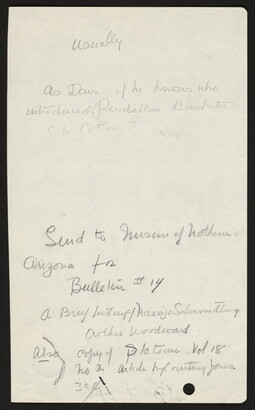 usually
as Dave if he knows who
introduced Pendleton Blankets
C. N. Cotton?
Send to Museum of Nothern
Arizona for
Bulletin # 14
A Brief History of Navajo Silversmithing
Arthur Woodward
Also copy of Plateau Vol 18
No 3. article by
30¢